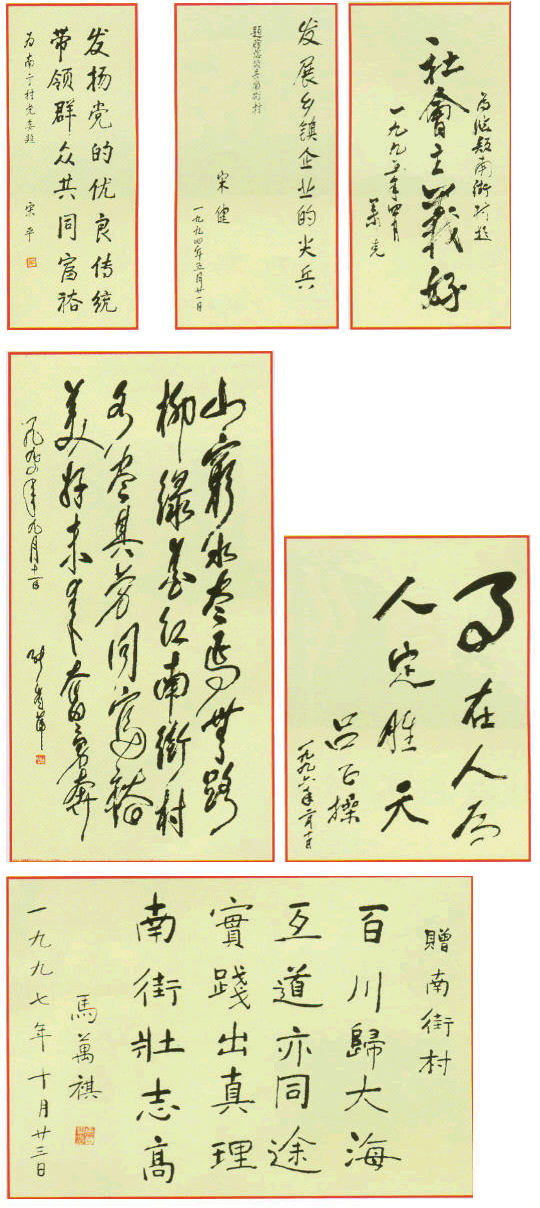 发扬党的优良传统
带领群众共同富裕
为南亍村党委题
宋平
发展乡镇企业的尖兵
题赠临颍县南街村
宋健
一九九四年五月廿一日
为临颍南街村题
社會主義好
一九九五年四月
萧克
山窮水尽焉無路
柳绿花红南街村
各尽其劳同富裕
美好未来奮勇奔
年九月十一日
事在人为
人定胜天
吕正操
一九九六年
贈南街村
百川歸大海
互道亦同途
實踐出真理
南街壯志高
馬萬祺
一九九七年十月廿三日